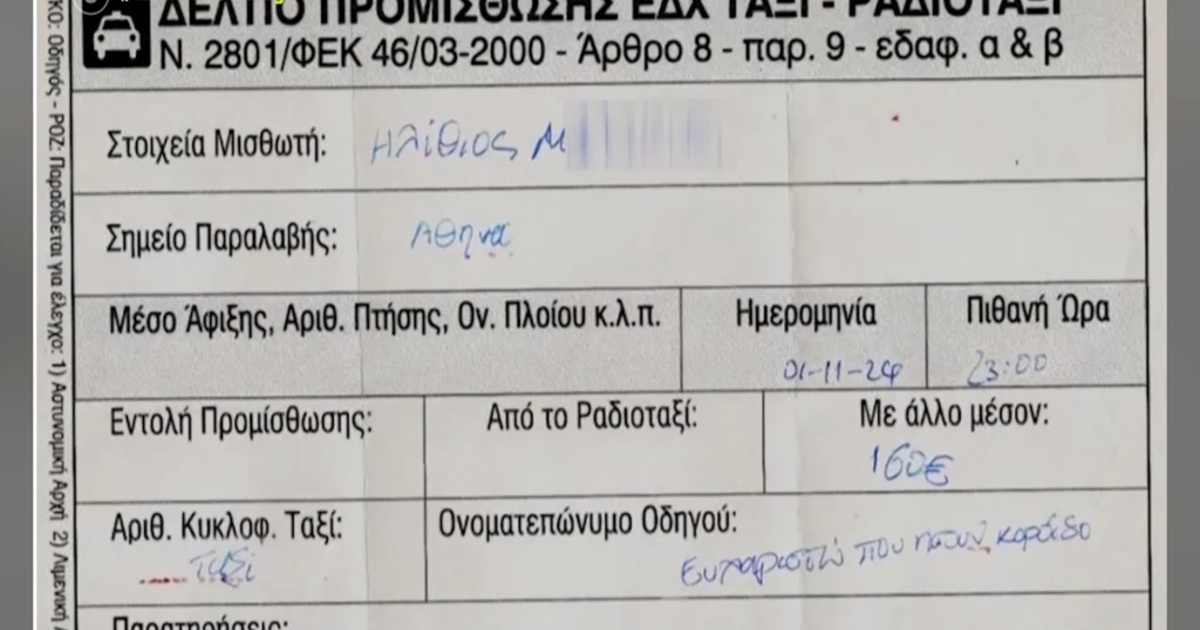 ΔΕΛΤΙΟ ΠΡΟΜΙΣΘΩΣΗΣ ΕΔΧ ΤΑΞΙ - ΡΑΔΙΟΤΑΞΙ
Ν. 2801/ΦΕΚ 46/03-2000 - Άρθρο 8 - παρ. 9 - εδαφ. α & β
Στοιχεία Μισθωτή: Ηλίθιος Μ
Σημείο Παραλαβής: Αθηνα
Μέσο Άφιξης, Αριθ. Πτήσης, Ον. Πλοίου κ.λ.π. Ημερομηνία Πιθανή Ώρα
01-11-24 23:00
Εντολή Προμίσθωσης: Από το Ραδιοταξί: Με άλλο μέσον:
160€
Αριθ. Κυκλοφ. Ταξί: Ονοματεπώνυμο Οδηγού:
Ταξί Ευχαριστώ που ησουν κοροιδο
Παρατηρήσεις:
ΚΟ: Οδηγός - ΡΟΖ: Παραδίδεται για έλεγχο: 1) Αστυνομική Αρχή 2) Λιμενική